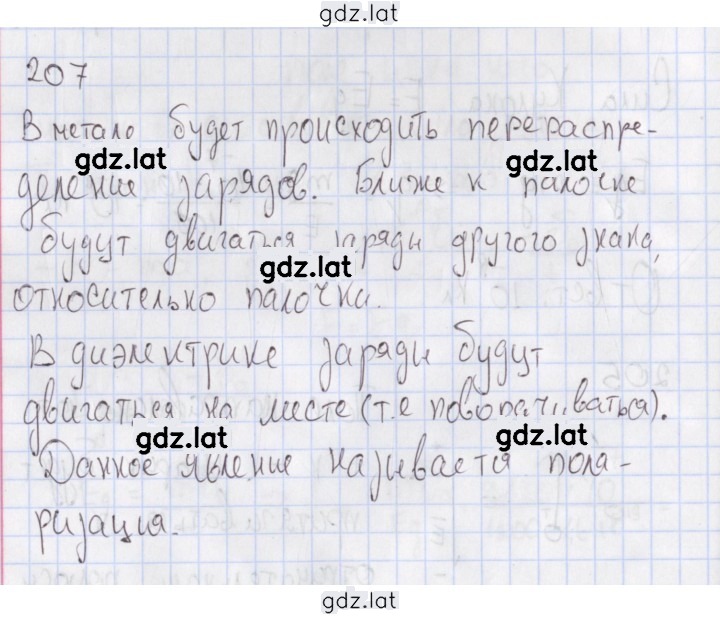 gdz.lat
207
В метало будет происходить перераспре-
gdz.lat gdz.lat
деление зарядов. Ближе к палочке
будут двигаться заряды другого знака,
gdz.lat
относительно палочки.
В диэлектрике заряды будут
двигаться на месте (т.е поворачиваться).
gdz.lat gdz.lat
Данное явление называется поля-
ризация.
gdz.lat